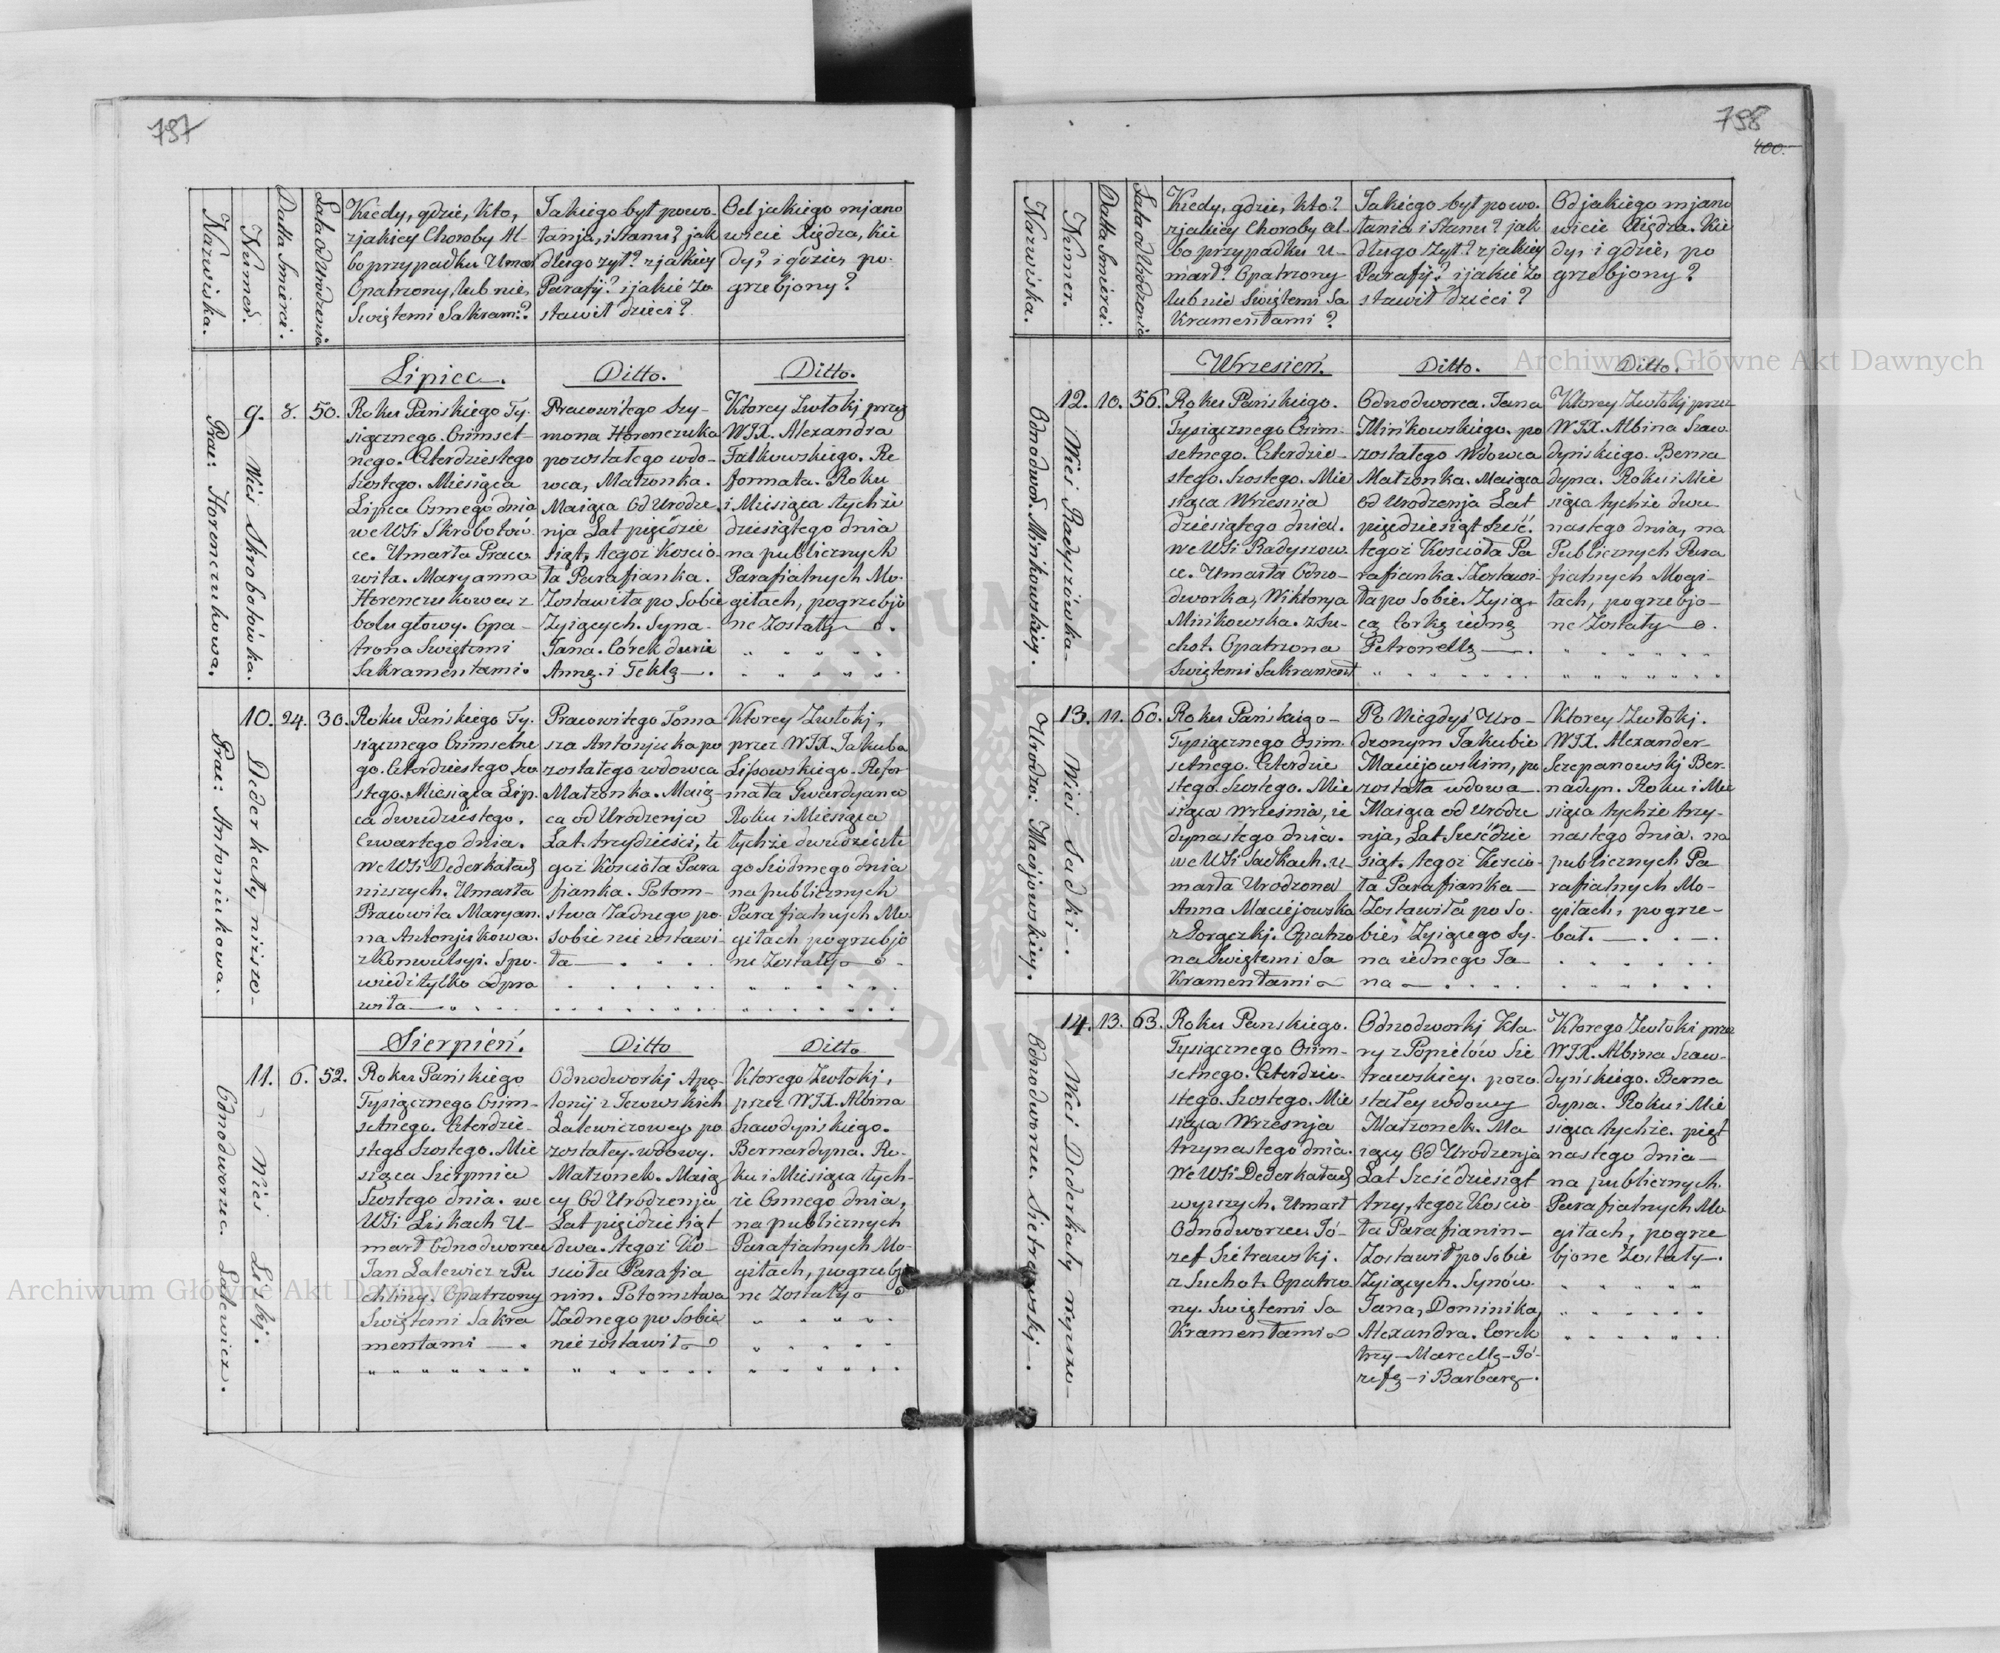 797
Nazwiska.
Numer.
Datta Smierci.
Lata od Urodzenia
Kiedy, gdzie, kto,
z jakiey Choroby Al-
bo przypadku Umar
Opatrzony, lub nie,
Swiętemi Sakram:?
Jakiego był powo-
łanja, i Stanu? jak
długo zył? z jakiey
Parafij? i jakie zo
stawił dzieci?
Od jakiego mjano
wicie Xiędza, kie
dy? i gdzie, po-
grzebjony?
Lipiec.
Ditto.
Ditto.
Prac: Horenczukowa.
9.
Wieś Skrobotówka.
8.
50.
Roku Pańskiego Ty-
siącznego Osmset-
nego. Czterdziestego
Szostego. Miesiąca
Lipca Osmego dnia
we WSi Skrobotów
ce. Umarła Praco
wita. Maryanna
Horenczukowa z
bolu głowy. Opa-
trona Swiętemi
Sakramentami.
Pracowitego Szy-
mona Horenczuka
pozostałego wdo-
wca, Małzonka.
Maiąca Od Urodze
nja Lat pięćdzie
siąt, tegoż Koscio
ła Parafianka.
Zostawiła po Sobie
Zyiących. Syna
Jana. Córek dwie
Annę. i Teklę —.
Ktorey Zwłokj przez
WJX. Alexandra
Fałkowskiego. Re
formata. Roku
i Miesiąca tychże
dziesiątego dnia
na publicznych
Parafialnych Mo-
giłach, pogrzebjo
ne Zostały —.
Prac: Antoniukowa.
10.
Dederkały niższe—
24.
30.
Roku Pańskiego Ty-
siącznego Osimsetne
go. Czterdziestego Szo
stego. Miesiąca Lip.
ca dwudziestego.
Czwartego dnia.
We WSi Dederkałach
niższych. Umarła
Pracowita Maryan.
na Antonjukowa.
z Konwulsyi. Spo-
wiedź tylko odpra
wiła —
Pracowitego Toma
sza Antonjuka po
zostałego wdowca
Małzonka. Maią-
ca od Urodzenja
Lat trzydzieści, te
goż Kościoła Para
fianka. Potom-
stwa Zadnego po-
Sobie nie zostawi-
ła —
Ktorey Zwłokj,
przez WJX. Jakuba
Lisowskiego. Refor
mata Gwardyana
Roku i Miesiąca
tychże dwudzieste
go Siódmego dnia
na publicznych
Parafialnych Mo.
giłach pogrzebjo
ne Zostały
Sierpień.
Ditto
Ditto
Odnodworzec. Lalewicz.
11.
Wieś Liski.
6.
52.
Roku Pańskiego
Tysiącznego Osim-
setnego. Czterdzie-
stego Szostego. Mie
siąca Sierpnia
Szostego dnia. we
WSi Liskach U-
marł Odnodworzec
Jan Lalewicz z Pu
chliny. Opatrzony
Swiętemi Sakra
mentami —.
Odnodworkj Apo-
lonij z Jezowskich
Lalewiczowey po
zostałey. wdowy.
Małzonek. Maią
cy Od Urodzenja
Lat pięćdziesiąt
dwa. tegoż Ko-
scioła Parafia
nin. Potomstwa
Zadnego po Sobie
nie zostawił
Ktorego Zwłokj,
przez WJX. Albina
Szawdyńskiego.
Bernardyna. Ro-
ku i Miesiąca tych-
że Osmego dnia,
na publicznych
Parafialnych Mo-
giłach, pogrzebjo
ne Zostały
798
400.
Nazwiska.
Numer.
Datta Smierci.
Lata od Urodzenia
Kiedy, gdzie, kto?
z jakiey Choroby al-
bo przypadku u-
marł? Opatrzony
lub nie Swiętemi Sa
kramentami?
Jakiego był powo-
łania i Stanu? jak
długo Zył? z jakiey
Parafij? i jakie Zo
stawił dzieci?
Od jakiego mjano
wicie Xiędza. Kie
dy, i gdzie, po
grzebjony?
Wrzesień.
Ditto.
Ditto.
Odnodwor. Minkowskiey.
12.
Wieś Radyszówka—
10.
56.
Roku Pańskiego.
Tysiącznego Osim-
setnego. Czterdzie-
stego. Szostego. Mie
siąca Wrzesnia
dziesiątego dnia.
We WSi Radyszow
ce. Umarła Odno-
dworka, Wiktorya
Minkowska. z Su-
chot. Opatrzona
Swiętemi Sakrament
Odnodworca. Jana
Minkowskiego. po
zostałego Wdowca
Małzonka. Maiąca
od Urodzenja Lat
pięćdziesiąt Sześć.
tegoż Kościoła Pa
rafianka. Zostawi-
ła po Sobie. Zyią-
cą Corkę iedną
Petronellę —.
Ktorey Zwłokj przez
WJX. Albina Szaw-
dyńskiego. Berna
dyna. Roku i Mie
siąca tychże dwu
nastego dnia, na
Publicznych Para
fialnych Mogi-
łach, pogrzebjo-
ne Zostały —.
Urodzo: Maciejowskiey.
13.
Wieś Sadki—.
11.
60.
Roku Pańskiego—
Tysiącznego Osim.
setnego. Czterdzie
stego. Szostego. Mie
siąca Września, ie
dynastego dnia.
we WSi Sadkach. u-
marła Urodzona
Anna Maciejowska
z Gorączkj. Opatrzo
na Swiętemi Sa
kramentami
Po Niegdyś Uro-
dzonym Jakubie
Maciejowskim, po
zostala wdowa—
Maiąca od Urodze
nja, Lat Sześćdzie
siąt. tegoż Koscio-
ła Parafianka—
Zostawiła po So-
bie, Zyiącego Sy-
na iednego Ja-
na
Ktorey Zwłokj.
WJX. Alexander-
Szczepanowskj Ber-
nadyn. Roku i Mie
siąca tychże trzy-
nastego dnia. na
publicznych Pa
rafialnych Mo-
giłach, pogrze-
bał. —
Odnodworzec. Sietrawskj—.
14.
Wieś Dederkały wyższe—
13.
63.
Roku Panskiego.
Tysiącznego Osim-
setnego. Czterdzie-
stego. Szostego. Mie
siąca Wrzesnja
trzynastego dnia.
We WSi Dederkałach
wyższych. Umarł
Odnodworzec Jó-
zef Sietrawskj.
z Suchot. Opatrzo
ny. Swiętemi Sa
kramentami
Odnodworkj Kla-
ry z Popielów Sie
trawskiey. pozo
stałey wdowy
Małzonek. Ma
iący Od Urodzenja
Lat Sześćdziesiąt
trzy, tegoż Koscio
ła Parafianin-
Zostawił po Sobie
Zyiących. Synów.
Jana, Dominika,
Alexandra. Corek
trzy—Marcellę—Jó-
zefę—i Barbarę.
Ktorego Zwłoki przez
WJX. Albina Szaw-
dyńskiego. Berna
dyna. Roku i Mie
siąca tychże. pięt
nastego dnia—
na publicznych.
Parafialnych Mo
giłach, pogrze
bjone Zostały.
Archiwum Główne Akt Dawnych
Archiwum Główne Akt Dawnych